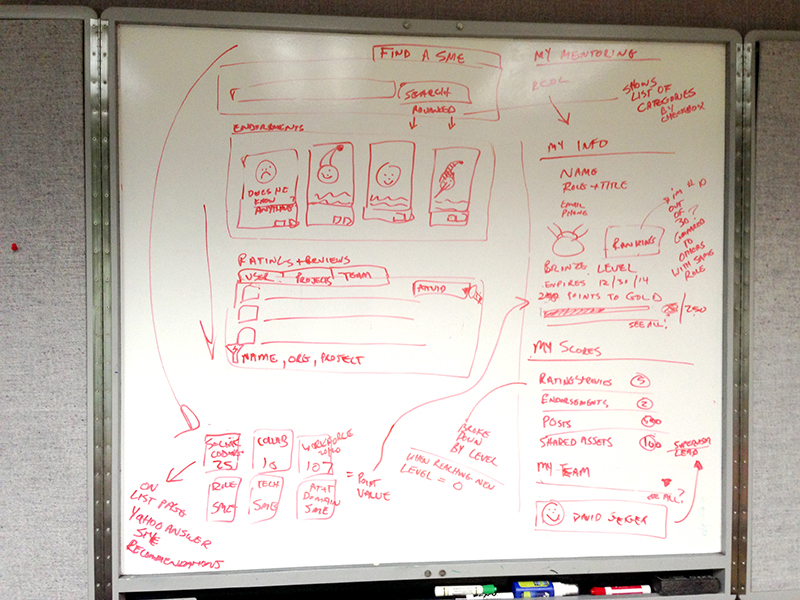 FIND A SME
SEARCH
ADVANCED
ENDORSMENTS
DOES HE
KNOW
ANYTHING?
RATINGS + REVIEWS
USER
PROJECTS
TEAM
NAME, ORG, PROJECT
SOCIAL
CODING
25
COLLAB
10
WORKFORCE
20/20
107
ROLE
SME
TECH
SME
AT+T
DOMAIN
SME
= POINT
VALUE
ON
LIST PAGE
YAHOO ANSWER
SME
RECOMMENDATIONS
BROKE
DOWN
BY LEVEL
WHEN REACHING NEW
LEVEL = 0
MY MENTORING
ROLE
SHOWS
LIST OF
CATEGORIES
BY
CHECKBOX
MY INFO
NAME
ROLE + TITLE
EMAIL
PHONE
RANKING
I'M # 10
OUT
OF
30?
COMPARED
TO
OTHERS
WITH SAME
ROLE
BRONZE LEVEL
EXPIRES 12/30/14
POINTS TO GOLD
/250
SEE ALL!
MY SCORES
RATINGS + REVIEWS 5
ENDORSEMENTS 2
POSTS 500
SHARED ASSETS 100
SUPERVISOR
LEAD
MY TEAM
SEE ALL?
DAVID SERGER